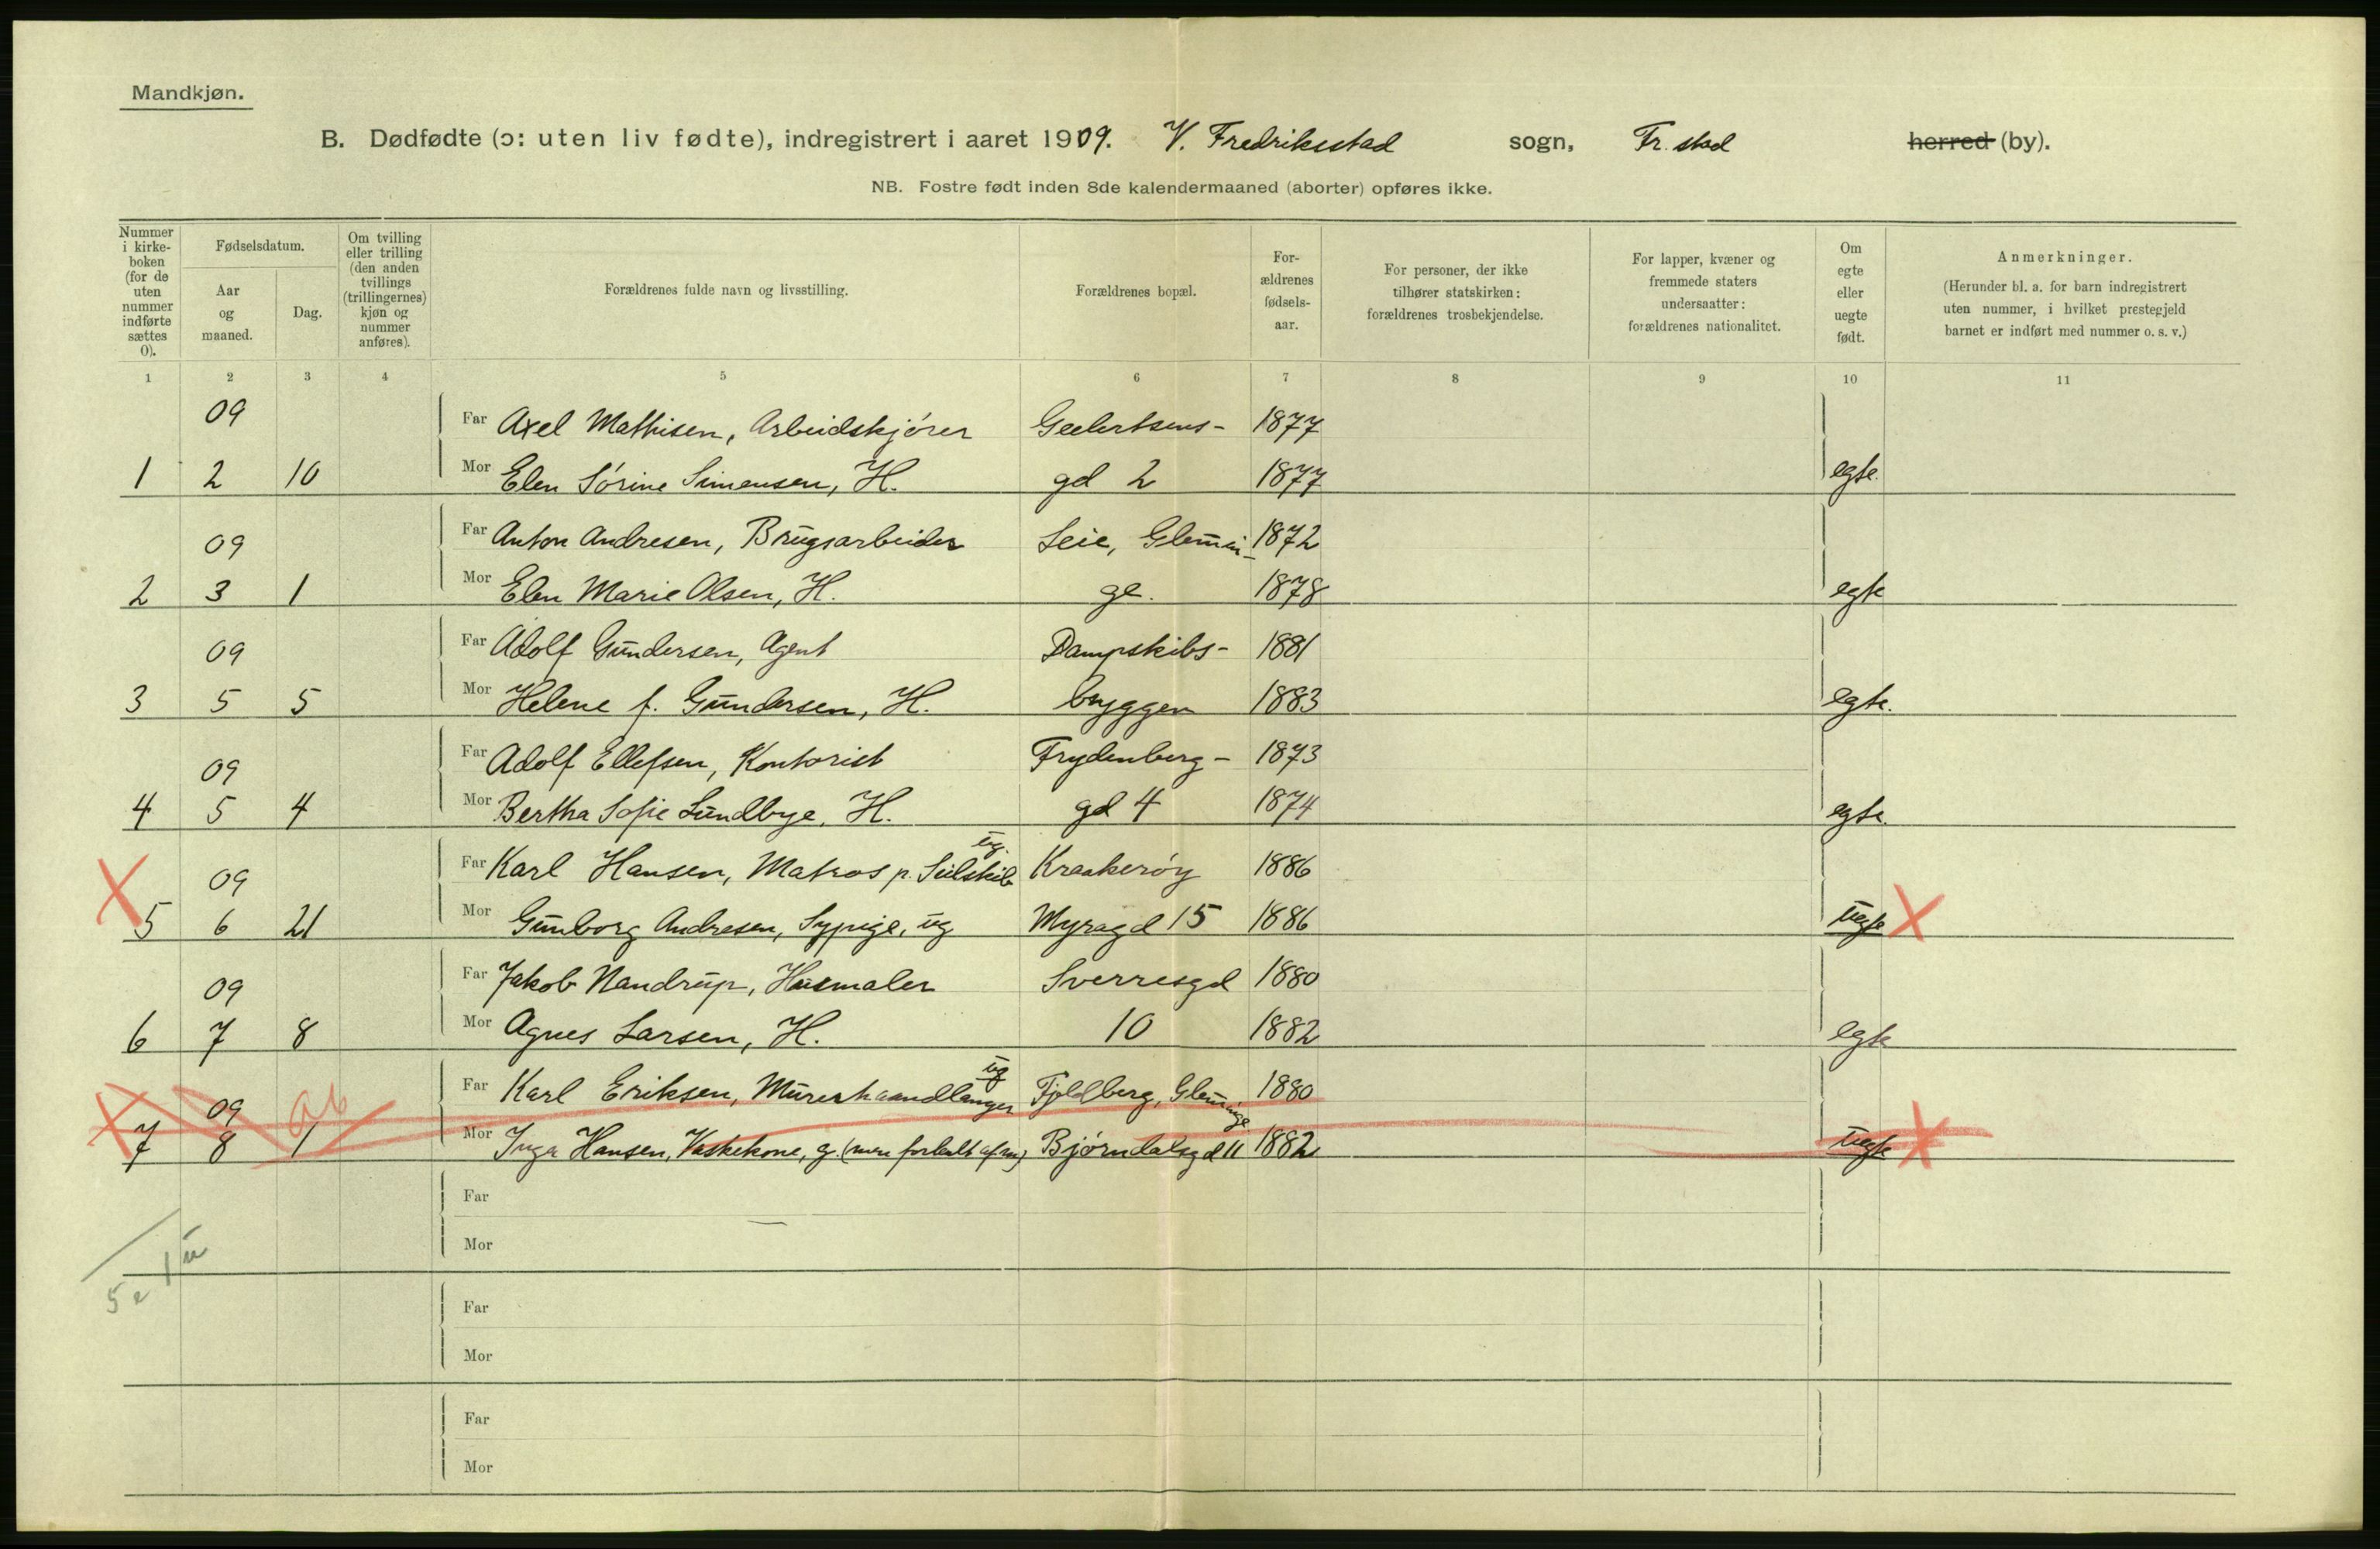 Mandkjøn.
B. Dødfødte (ɔ: uten liv fødte), indregistrert i aaret 1909. V. Fredriksstad sogn, Fr.stad herred (by).
NB. Fostre født inden 8de kalendermaaned (aborter) opføres ikke.
Nummer i kirke-boken (for de uten nummer indførte sættes 0).
Fødselsdatum.
Aar og maaned.
Dag.
Om tvilling eller trilling (den anden tvillings (trillingernes) kjøn og nummer anføres).
Forældrenes fulde navn og livsstilling.
Forældrenes bopæl.
For-ældrenes fødsels-aar.
For personer, der ikke tilhører statskirken: forældrenes trosbekjendelse.
For lapper, kvæner og fremmede staters undersaatter: forældrenes nationalitet.
Om egte eller uegte født.
Anmerkninger.
(Herunder bl. a. for barn indregistrert uten nummer, i hvilket prestegjeld barnet er indført med nummer o. s. v.)
1 2 3 4 5 6 7 8 9 10 11
09 Far Axel Mathisen, Arbeidskjører Geelertsens- 1877
1 2 10 Mor Elen Sørine Simensen, H. gd 2 1877 egte.
09 Far Anton Andresen, Brugsarbeider Leie, Glemmin- 1872
2 3 1 Mor Elen Marie Olsen, H. ge. 1878 egte
09 Far Adolf Gundersen, Agent Dampskibs- 1881
3 5 5 Mor Helene f. Gundersen, H. bryggen 1883 egte.
09 Far Adolf Ellefsen, Kontorist Frydenberg- 1873
4 5 4 Mor Bertha Sofie Lundbye, H. gd 4 1874 egte.
09 Far Karl Hansen, Matros p. Seilskib ug. Kraakerøy 1886
5 6 21 Mor Gunborg Andresen, Sypige, ug Myragd 15 1886 uegte
09 Far Jakob Nandrup, Husmaler Sverresgd 1880
6 7 8 Mor Agnes Larsen, H. 10 1882 egte
09 ab Far Karl Eriksen, Murerhaandlanger ug Fjeldberg, Glemminge 1880
7 8 1 Mor Inga Hansen, Vaskekone, g. (men forladt af m) Bjørndalsgd 11 1882 uegte
Far
Mor
1 u
5 e
Far
Mor
Far
Mor